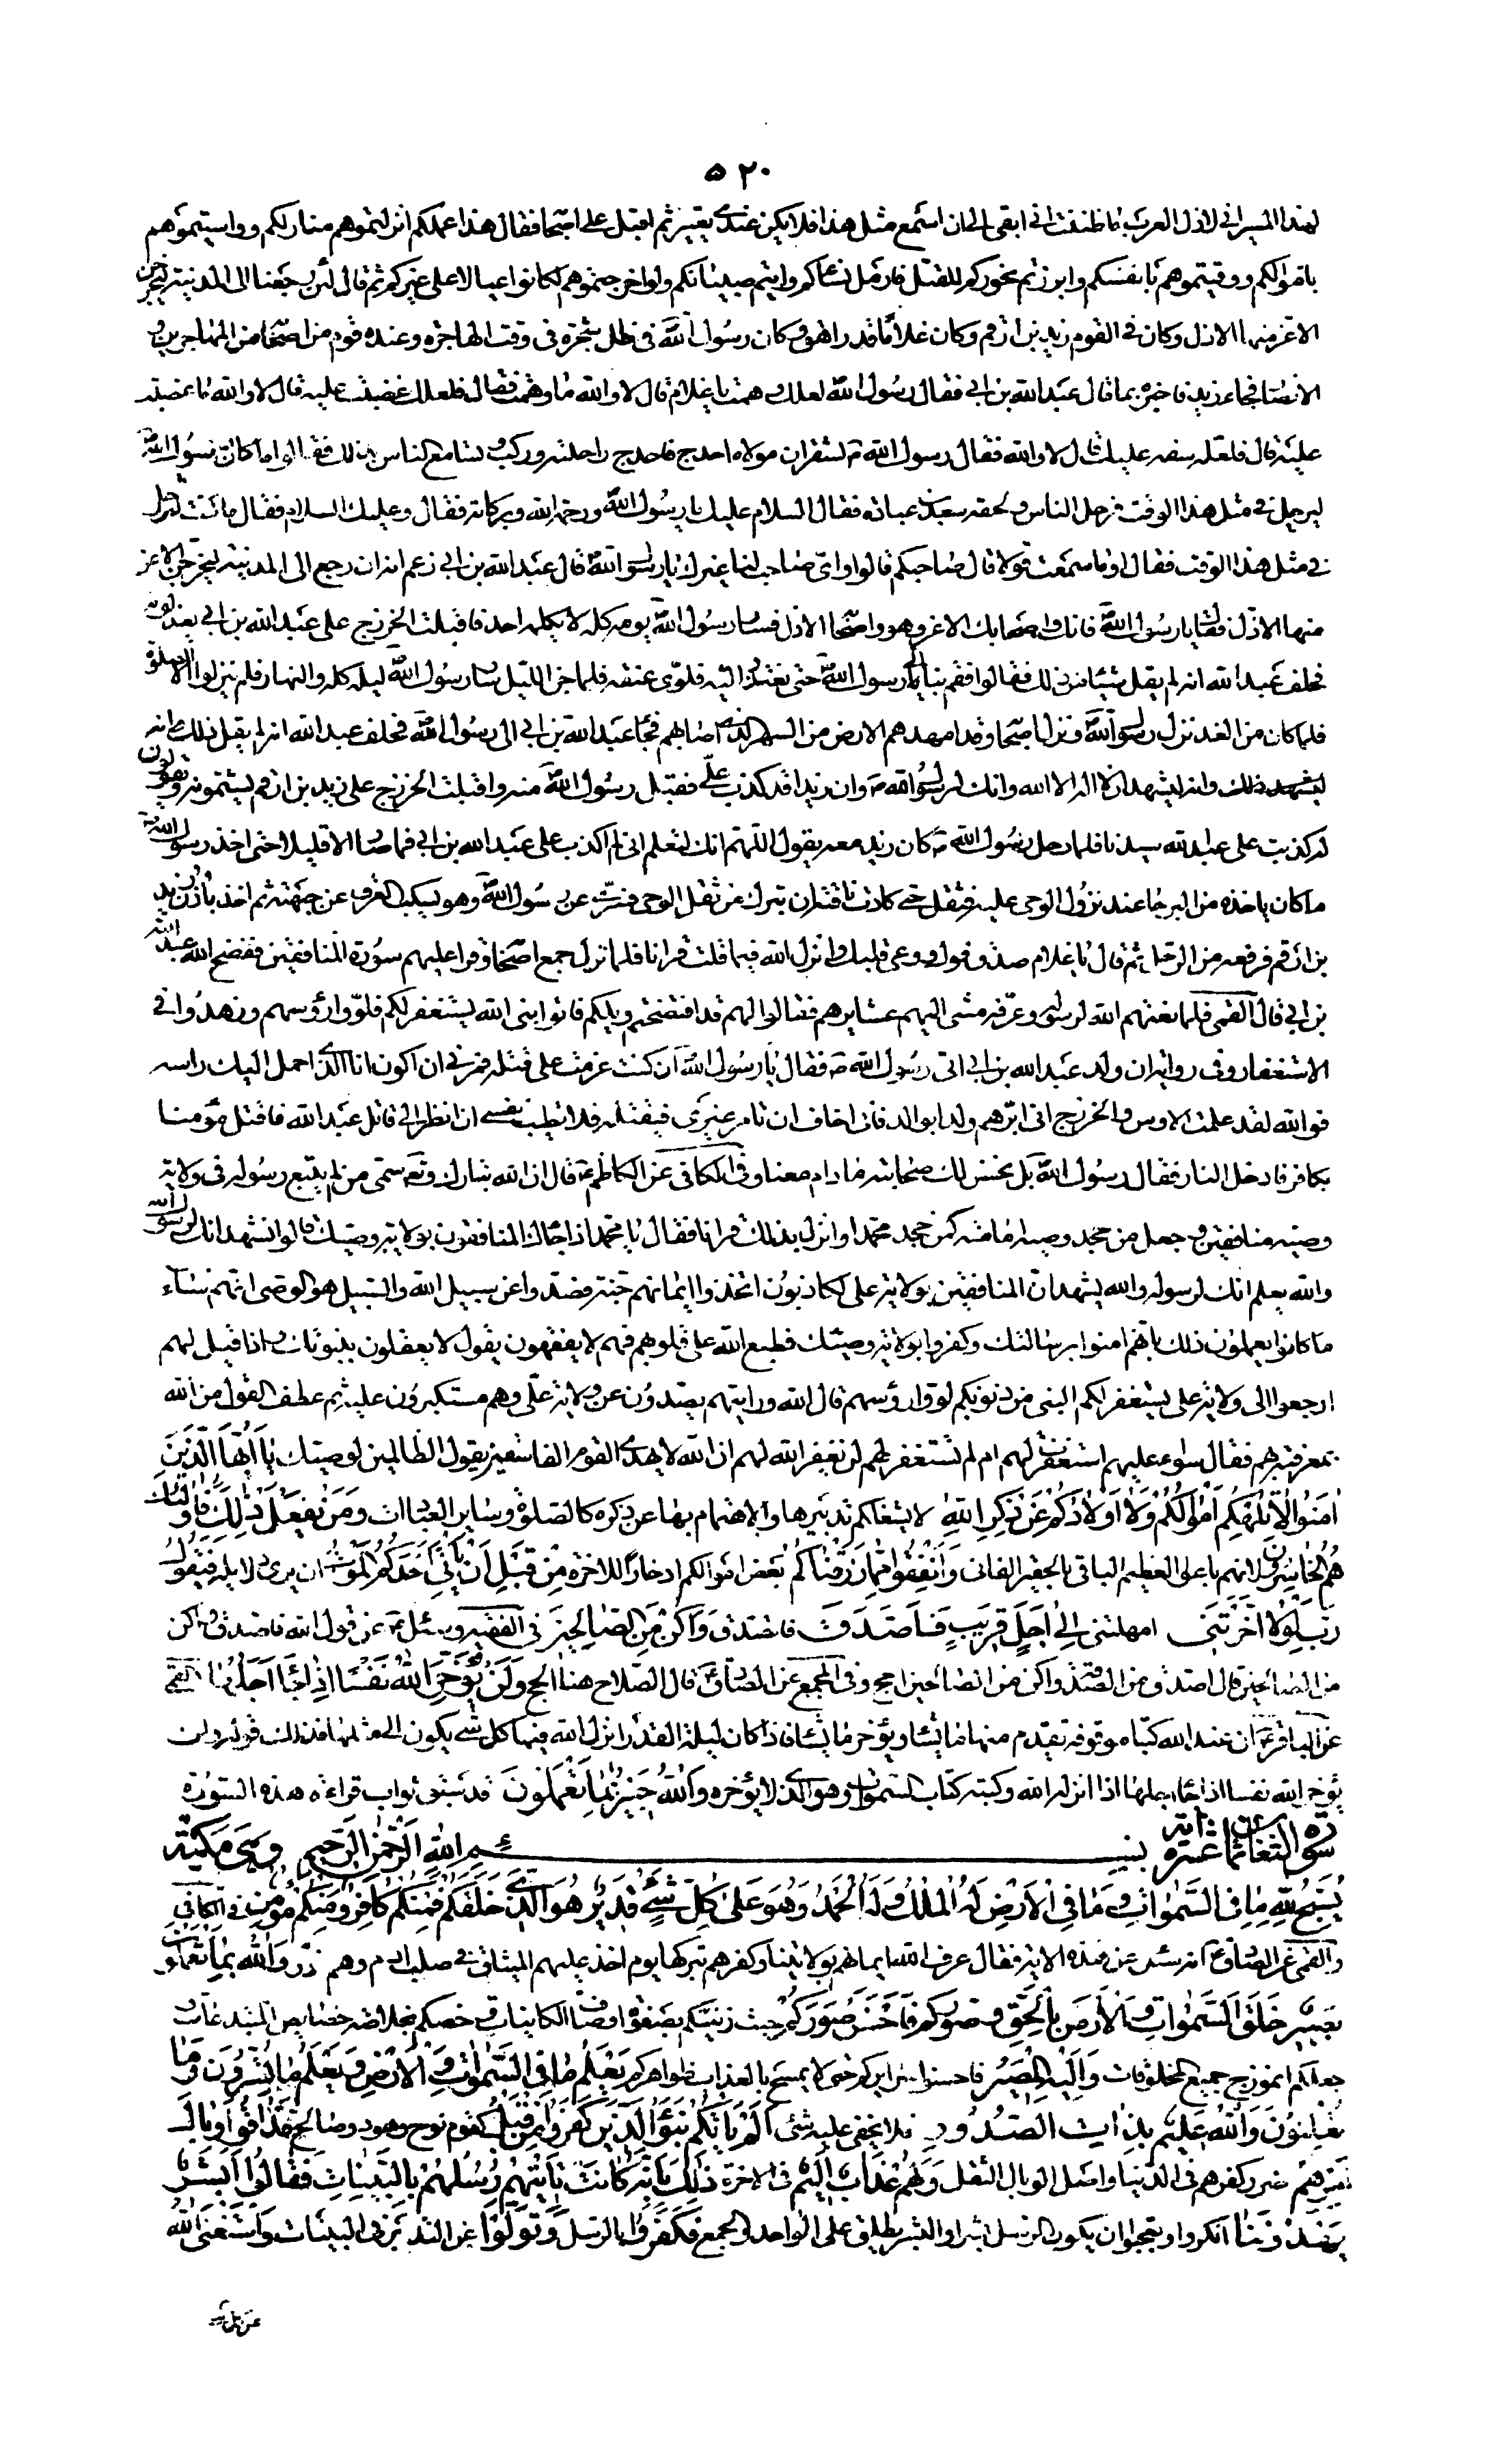 ٥٢٠
لهذا المسير اني لاذل العرب ما ظننت اني ابقى الى ان اسمع مثل هذا فلا يكن عندي تغيير ثم اقبل على اصحابه فقال هذا عملكم انزلتموهم منازلكم وواسيتموهم
باموالكم ووقيتموهم بانفسكم وابرزتم نحوركم للقتل فارمل نساءكم وايتم صبيانكم ولو اخرجتموهم لكانوا عيالا على غيركم ثم قال لئن رجعنا الى المدينة ليخرجن
الاعز منها الاذل وكان في القوم زيد بن ارقم وكان غلاما قد راهق وكان رسول الله في ظل شجرة في وقت الهاجرة وعنده قوم من اصحابه من المهاجرين و
الانصار فجاء زيد فاخبره بما قال عبد الله بن ابي فقال رسول الله لعلك وهمت يا غلام قال لا والله ما وهمت فقال فلعلك غضبت عليه قال لا والله ما غضبت
عليه قال فلعله سفه عليك قال لا والله فقال رسول الله ص لشقران مولاه احدج فاحدج راحلته وركب وتسامع الناس بذلك فقالوا ما كان رسول الله
ليرحل في مثل هذا الوقت فرحل الناس ولحقه سعد بن عبادة فقال السلام عليك يا رسول الله ورحمة الله وبركاته فقال وعليك السلام فقال ما كنت لترحل
في مثل هذا الوقت فقال اوما سمعت قولا قال صاحبكم قالوا واي صاحب لنا غيرك يا رسول الله قال عبد الله بن ابي زعم انه ان رجع الى المدينة ليخرجن الاعز
منها الاذل فقال يا رسول الله فانت واصحابك الاعز وهو واصحابه الاذل فسار رسول الله يومه كله لا يكلمه احد فاقبلت الخزرج على عبد الله بن ابي يعذلونه
فحلف عبد الله انه لم يقل شيئا من ذلك فقالوا فقم بنا الى رسول الله حتى تعتذر اليه فلوى عنقه فلما جن الليل سار رسول الله ليله كله والنهار فلم ينزلوا الا للصلوة
فلما كان من الغد نزل رسول الله ونزل اصحابه وقد امهدهم الارض من السهر الذي اصابهم فجاء عبد الله بن ابي الى رسول الله فحلف عبد الله انه لم يقل ذلك وانه
ليشهد ان لا اله الا الله وانك لرسول الله ص وان زيدا قد كذب علي فقبل رسول الله منه واقبلت الخزرج على زيد بن ارقم يشتمونه ويقولون
له كذبت على عبد الله سيدنا فلما رحل رسول الله ص كان زيد معه يقول اللهم انك لتعلم اني لم اكذب على عبد الله بن ابي فما سار الا قليلا حتى اخذ رسول الله
ما كان ياخذه من البرحاء عند نزول الوحي عليه فثقل حتى كادت ناقته ان تبرك من ثقل الوحي فسري عن رسول الله وهو يسكب العرق عن جبهته ثم اخذ باذن زيد
بن ارقم فرفعه من الرحل ثم قال يا غلام صدق قولك ووعى قلبك وانزل الله فيما قلت قرانا فلما نزل جمع اصحابه وقرا عليهم سورة المنافقين ففضح الله عبد الله
بن ابي قال القمي فلما نعتهم الله لرسوله وعرفه مشى اليهم عشايرهم فقالوا لهم قد افتضحتم ويلكم فاتوا نبي الله يستغفر لكم فلووا رؤسهم وزهدوا في
الاستغفار وفي رواية ان ولد عبد الله بن ابي اتى رسول الله ص فقال يا رسول الله ان كنت عزمت على قتله فمرني ان اكون انا الذي احمل اليك راسه
فوالله لقد علمت الاوس والخزرج اني ابرهم ولدا بوالد فاني اخاف ان تامر غيري فيقتله فلا تطيب نفسي ان انظر الى قاتل عبد الله فاقتل مؤمنا
بكافر فادخل النار فقال رسول الله بل نحسن لك صحابته ما دام معنا وفي الكافي عن الكاظم ع قال ان الله تبارك وتع سمى من لم يتبع رسوله في ولاية
وصيه منافقين وجعل من جحد وصيه امامته كمن جحد محمدا وانزل بذلك قرانا فقال يا محمد اذا جاءك المنافقون بولاية وصيك قالوا نشهد انك لرسول الله
والله يعلم انك لرسوله والله يشهد ان المنافقين بولاية علي لكاذبون اتخذوا ايمانهم جنة فصدوا عن سبيل الله والسبيل هو الوصي انهم ساء
ما كانوا يعملون ذلك بانهم امنوا برسالتك وكفروا بولاية وصيك فطبع الله على قلوبهم فهم لا يفقهون يقول لا يعقلون بنبوتك واذا قيل لهم
ارجعوا الى ولاية علي يستغفر لكم النبي من ذنوبكم لووا رؤسهم قال الله ورايتهم يصدون عن ولاية علي وهم مستكبرون عليه ثم عطف القول من الله
بمعرفته بهم فقال سواء عليهم استغفرت لهم ام لم تستغفر لهم لن يغفر الله لهم ان الله لا يهدي القوم الفاسقين يقول الظالمين لوصيك يا اَيُّهَا الَّذينَ
اٰمَنُوا لا تُلْهِكُمْ اَمْوالُكُمْ وَلا اَوْلادُكُمْ عَنْ ذِكْرِ اللهِ لا يشغلكم تدبيرها والاهتمام بها عن ذكره كالصلوة وساير العبادات وَمَنْ يَفْعَلْ ذٰلِكَ فَاُولٰئِكَ
هُمُ الْخاسِرُونَ لانهم باعوا العظيم الباقي بالحقير الفاني وَاَنْفِقُوا مِمّا رَزَقْناكُمْ بعض اموالكم ادخارا للاخرة مِنْ قَبْلِ اَنْ يَأْتِيَ اَحَدَكُمُ الْمَوْتُ ان يرى دلايله فَيَقُولَ
رَبِّ لَوْلا اَخَّرْتَني امهلتني اِلىٰ اَجَلٍ قَريبٍ فَاَصَّدَّقَ فاتصدق وَاَكُنْ مِنَ الصّالِحينَ في الفقيه وسئل ع عن قول الله فاصدق واكن
من الصالحين قال اصدق من الصدقة واكن من الصالحين احج وفي المجمع عن الصادق ع قال الصلاح هنا الحج وَلَنْ يُؤَخِّرَ اللهُ نَفْسًا اِذا جاءَ اَجَلُها القمي
عن الباقر ع ان عند الله كتبا موقوفة يقدم منها ما يشاء ويؤخر ما يشاء فاذا كان ليلة القدر انزل الله فيها كل شيء يكون الى مثلها فذلك قوله ولن
يؤخر الله نفسا اذا جاء اجلها اذا انزله الله وكتبه كتاب السموات وهو الذي لا يؤخره وَاللهُ خَبيرٌ بِما تَعْمَلُونَ قد سبق ثواب قراءة هذه السورة
سورة التغابن ثماني عشرة اية بِسْمِ اللهِ الرَّحْمٰنِ الرَّحيمِ وهي مكية
يُسَبِّحُ لِلّٰهِ ما فِي السَّمٰواتِ وَما فِي الْاَرْضِ لَهُ الْمُلْكُ وَلَهُ الْحَمْدُ وَهُوَ عَلىٰ كُلِّ شَيْءٍ قَديرٌ هُوَ الَّذي خَلَقَكُمْ فَمِنْكُمْ كافِرٌ وَمِنْكُمْ مُؤْمِنٌ في الكافي
والقمي عن الصادق ع انه سئل عن هذه الاية فقال عرف الله ايمانهم بولايتنا وكفرهم بتركها يوم اخذ عليهم الميثاق في صلب ادم وهم ذر وَاللهُ بِما تَعْمَلُونَ
بَصيرٌ خَلَقَ السَّمٰواتِ وَالْاَرْضَ بِالْحَقِّ وَصَوَّرَكُمْ فَاَحْسَنَ صُوَرَكُمْ حيث زينكم بصفوة اوصاف الكاينات وخصكم بخلاصة خصايص المبدعات
جعلكم انموذج جميع المخلوقات وَاِلَيْهِ الْمَصيرُ فاحسنوا سرايركم حتى لا يمسخ بالعذاب ظواهركم يَعْلَمُ ما فِي السَّمٰواتِ وَالْاَرْضِ وَيَعْلَمُ ما تُسِرُّونَ وَما
تُعْلِنُونَ وَاللهُ عَليمٌ بِذاتِ الصُّدُورِ فلا يخفى عليه شئ اَلَمْ يَأْتِكُمْ نَبَؤُا الَّذينَ كَفَرُوا مِنْ قَبْلُ كقوم نوح وهود وصالح فَذاقُوا وَبالَ
اَمْرِهِمْ ضرر كفرهم في الدنيا واصل الوبال الثقل وَلَهُمْ عَذابٌ اَليمٌ في الاخرة ذٰلِكَ بِاَنَّهُ كانَتْ تَأْتيهِمْ رُسُلُهُمْ بِالْبَيِّناتِ فَقالُوا اَبَشَرٌ
يَهْدُونَنا انكروا وتعجبوا ان يكون الرسل بشرا والبشر يطلق على الواحد والجمع فَكَفَرُوا بالرسل وَتَوَلَّوْا عن التدبر في البينات وَاسْتَغْنَى اللهُ